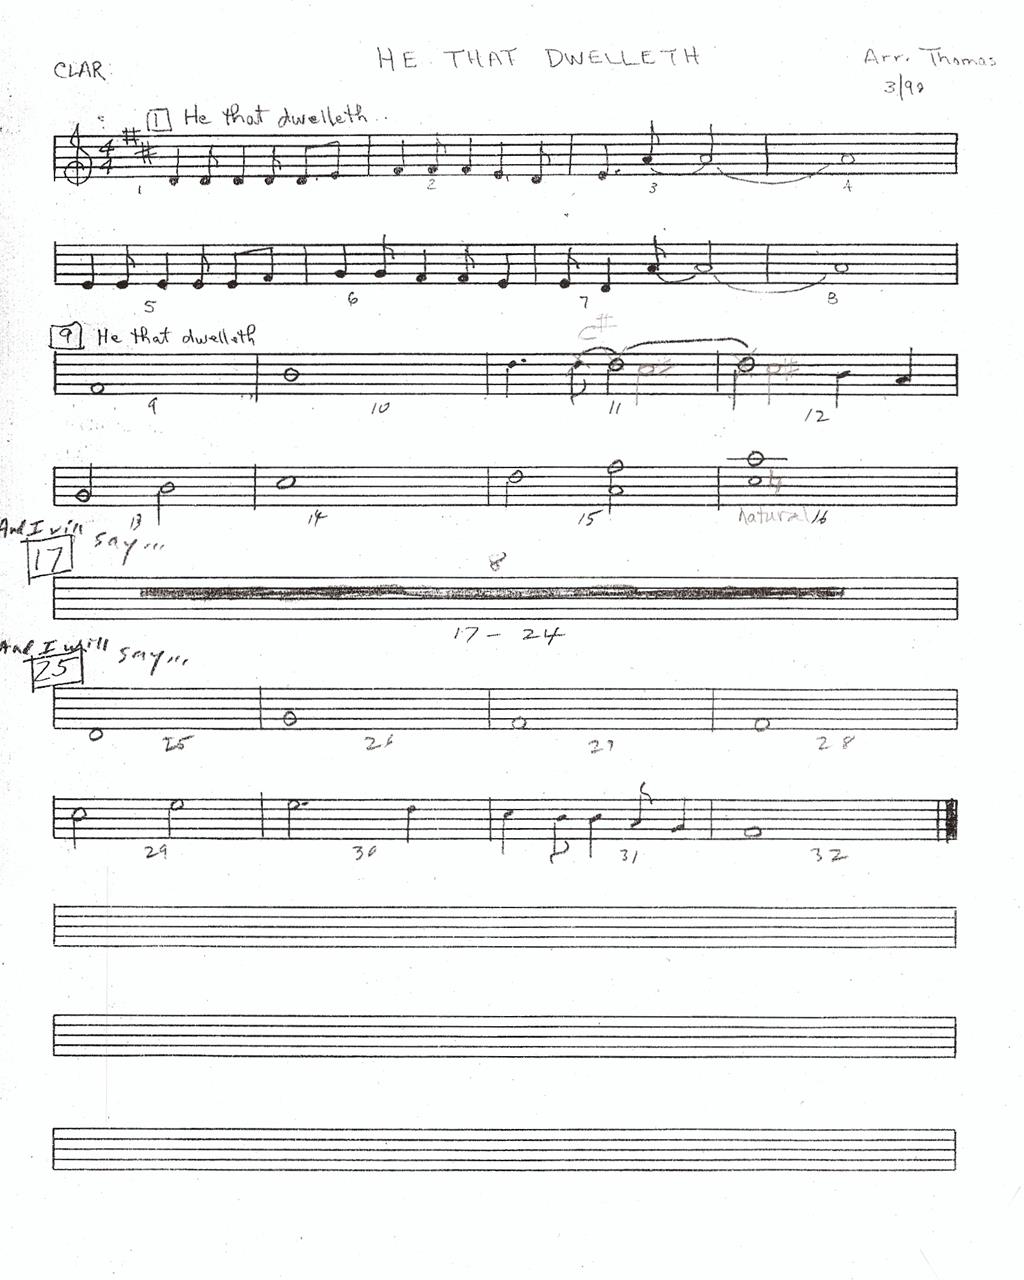 HE THAT DWELLETH
CLAR.
Arr. Thomas
3/92
1 He that dwelleth..
4
4
1 2 3 4
5 6 7 8
9 He that dwelleth
C#
9 10 11 12
13 14 15 natural 16
And I will
say...
17
8
17 - 24
And I will
say...
25
25 26 27 28
29 30 31 32